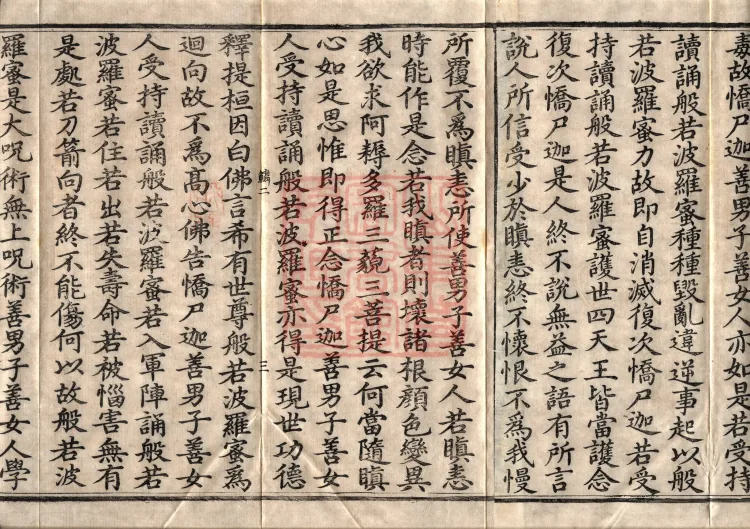 毒故憍尸迦善男子善女人亦如是若受持
讀誦般若波羅蜜種種毀亂違逆事起以般
若波羅蜜力故即自消滅復次憍尸迦若受
持讀誦般若波羅蜜護世四天王皆當護念
復次憍尸迦是人終不說無益之語有所言
說人所信受少於瞋恚終不懷恨不為我慢
所覆不為瞋恚所使善男子善女人若瞋恚
時能作是念若我瞋者則壞諸根顏色變異
我欲求阿耨多羅三藐三菩提云何當隨瞋
心如是思惟即得正念憍尸迦善男子善女
人受持讀誦般若波羅蜜亦得是現世功德
三
釋提桓因白佛言希有世尊般若波羅蜜為
迴向故不為高心佛告憍尸迦善男子善女
人受持讀誦般若波羅蜜若入軍陣誦般若
波羅蜜若住若出若失壽命若被惱害無有
是處若刀箭向者終不能傷何以故般若波
羅蜜是大呪術無上呪術善男子善女人學